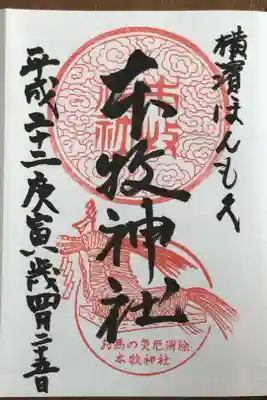 横濱ほんもく
本牧神社
平成二十二庚寅歳四月二十五日
お馬の災厄消除
本牧神社